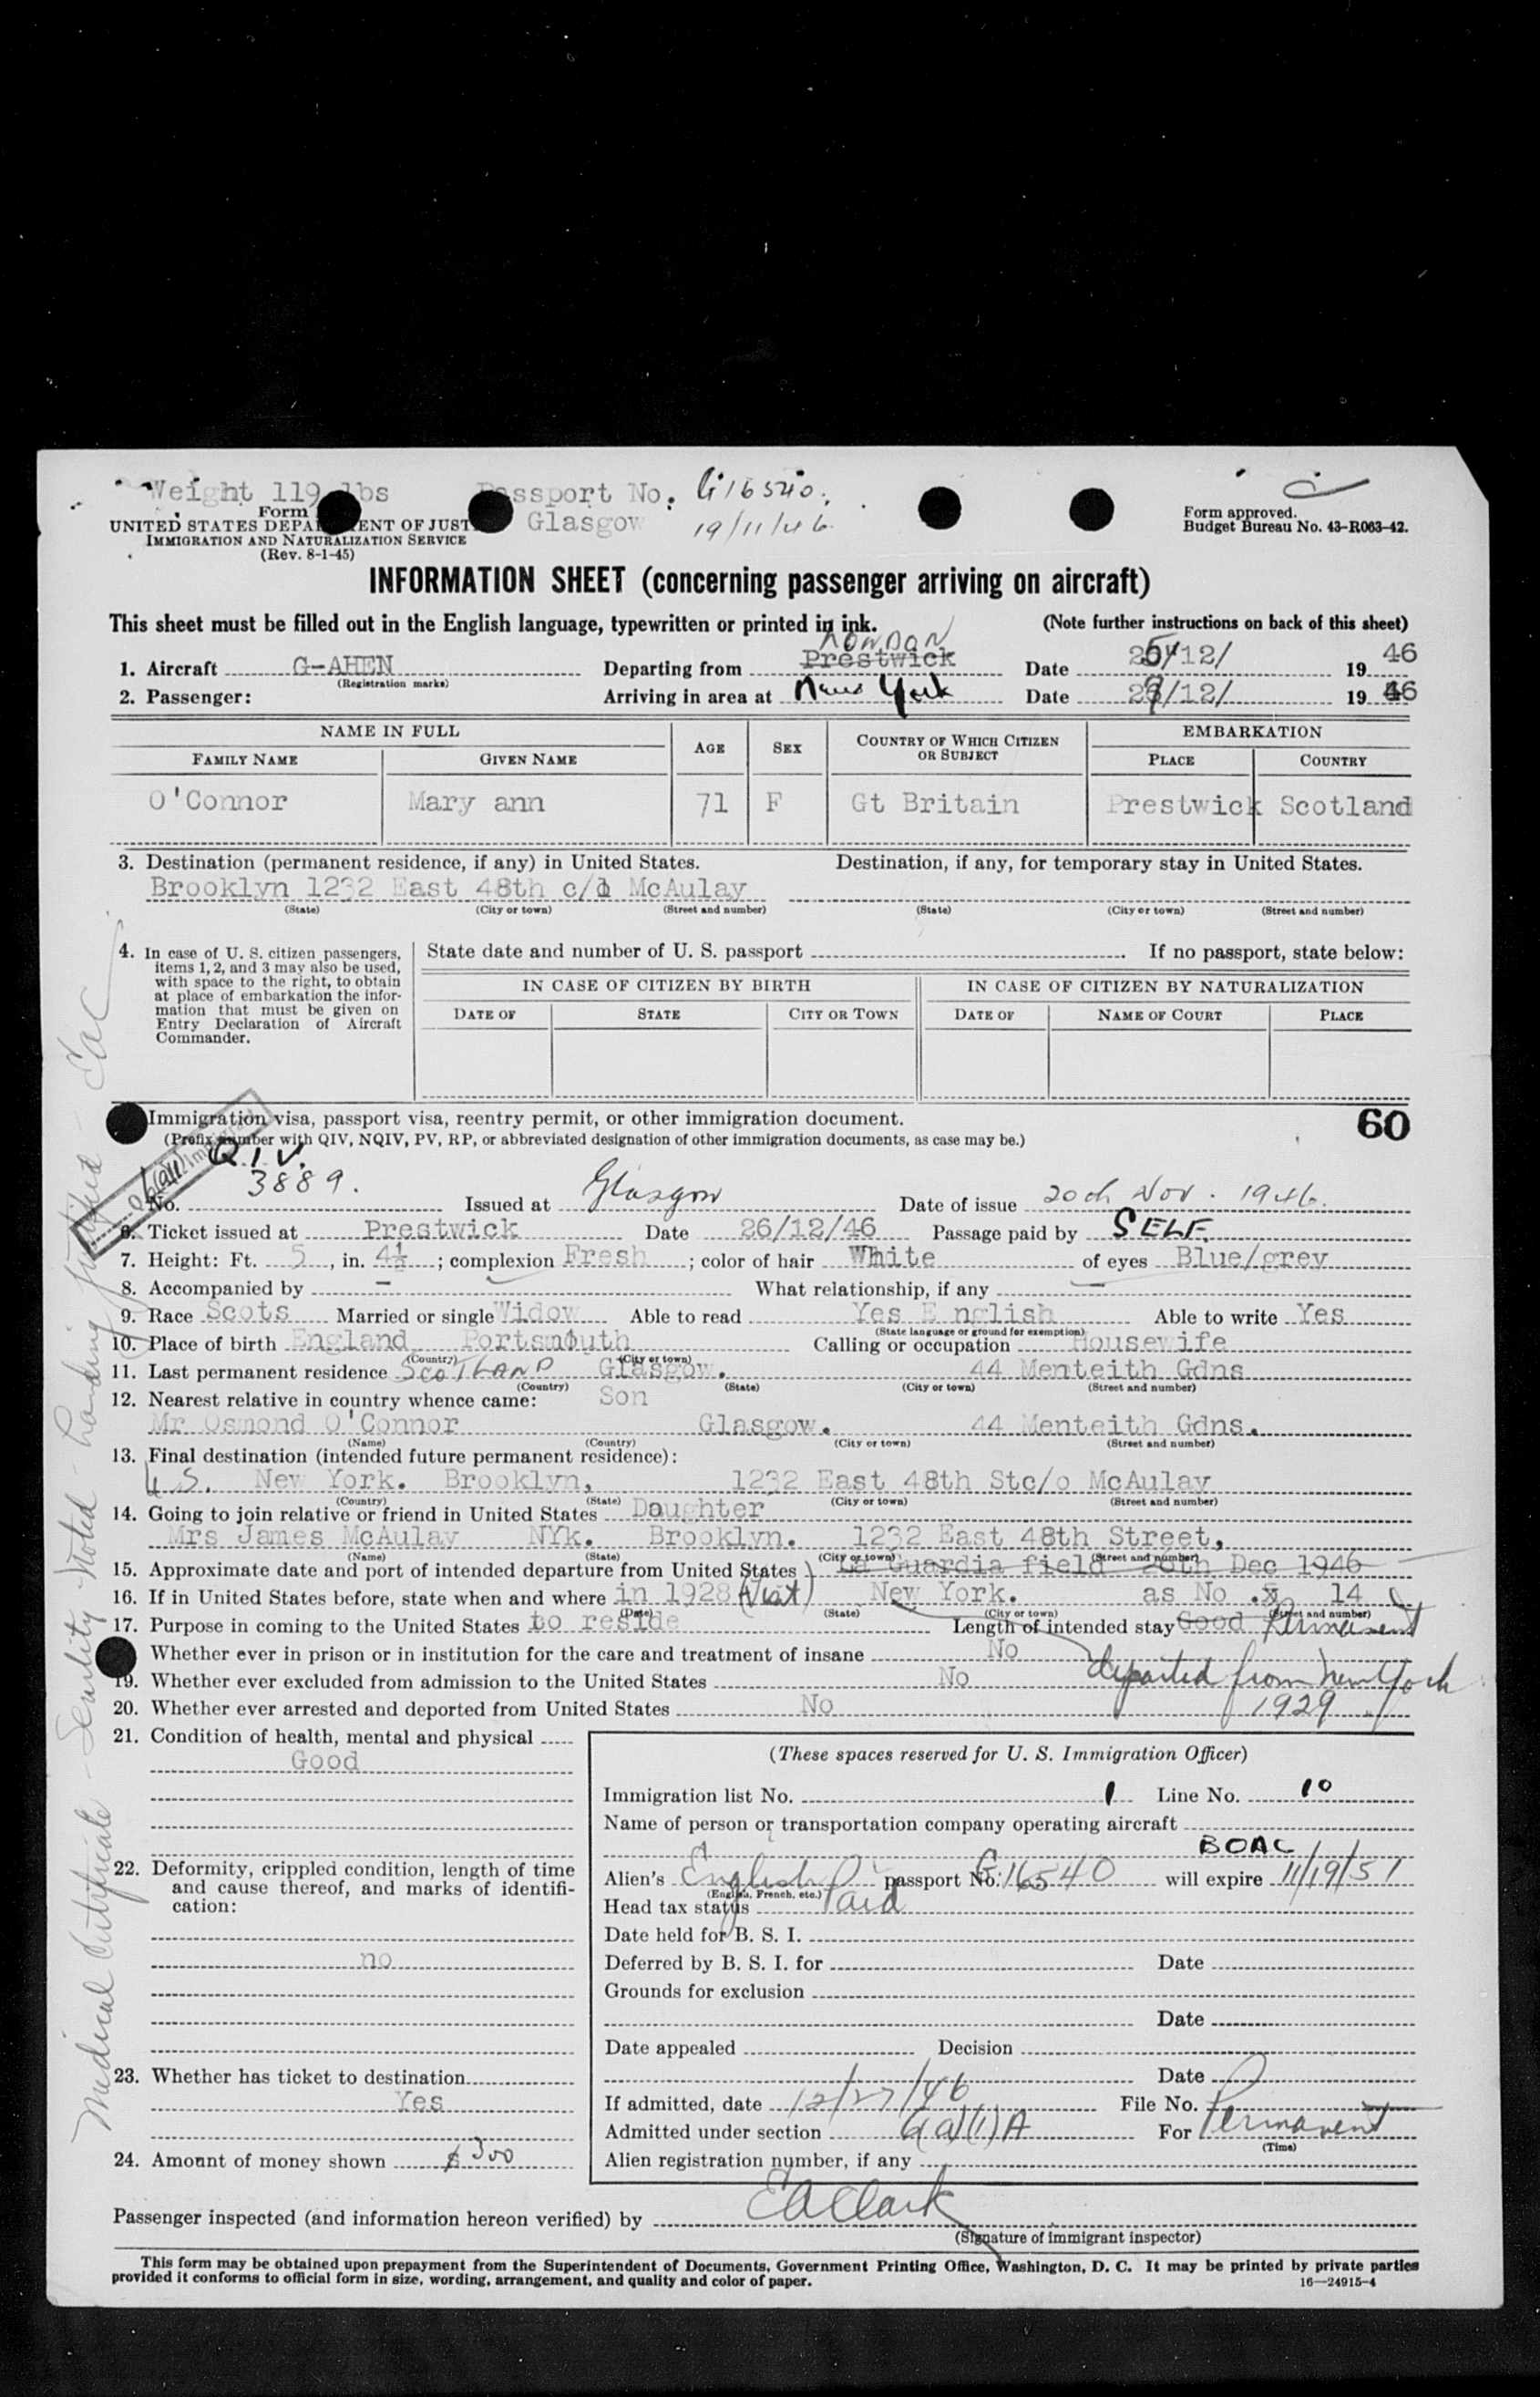 Weight 119 lbs Passport No. G16540.
Form
UNITED STATES DEPARTMENT OF JUSTICE Glasgow 19/11/46. Form approved.
IMMIGRATION AND NATURALIZATION SERVICE Budget Bureau No. 43-R063-42.
(Rev. 8-1-45)
INFORMATION SHEET (concerning passenger arriving on aircraft)
This sheet must be filled out in the English language, typewritten or printed in ink. (Note further instructions on back of this sheet)
LONDON
1. Aircraft G-AHEN Departing from Prestwick Date 25/12/ 19 46
(Registration marks)
2. Passenger: Arriving in area at New York Date 27/12/ 19 46
NAME IN FULL AGE SEX COUNTRY OF WHICH CITIZEN OR SUBJECT EMBARKATION
FAMILY NAME GIVEN NAME PLACE COUNTRY
O'Connor Mary ann 71 F Gt Britain Prestwick Scotland
3. Destination (permanent residence, if any) in United States. Destination, if any, for temporary stay in United States.
Brooklyn 1232 East 48th c/o McAulay
(State) (City or town) (Street and number) (State) (City or town) (Street and number)
4. In case of U. S. citizen passengers, items 1, 2, and 3 may also be used, with space to the right, to obtain at place of embarkation the information that must be given on Entry Declaration of Aircraft Commander.
State date and number of U. S. passport If no passport, state below:
IN CASE OF CITIZEN BY BIRTH IN CASE OF CITIZEN BY NATURALIZATION
DATE OF STATE CITY OR TOWN DATE OF NAME OF COURT PLACE
Immigration visa, passport visa, reentry permit, or other immigration document. 60
(Prefix number with QIV, NQIV, PV, RP, or abbreviated designation of other immigration documents, as case may be.)
Q.I.V.
No. 3889. Issued at Glasgow Date of issue 20th Nov. 1946.
6. Ticket issued at Prestwick Date 26/12/46 Passage paid by SELF.
7. Height: Ft. 5, in. 4½; complexion Fresh; color of hair White of eyes Blue/grey
8. Accompanied by — What relationship, if any —
9. Race Scots Married or single Widow Able to read Yes E nglish Able to write Yes
(State language or ground for exemption)
10. Place of birth England Portsmouth Calling or occupation Housewife
(Country) (City or town)
11. Last permanent residence SCOTLAND Glasgow. 44 Menteith Gdns
(Country) (State) (City or town) (Street and number)
12. Nearest relative in country whence came: Son
Mr Osmond O'Connor Glasgow. 44 Menteith Gdns.
(Name) (Country) (City or town) (Street and number)
13. Final destination (intended future permanent residence):
U.S. New York. Brooklyn, 1232 East 48th Stc/o McAulay
(Country) (State) (City or town) (Street and number)
14. Going to join relative or friend in United States Daughter
Mrs James McAulay NYk. Brooklyn. 1232 East 48th Street,
(Name) (State) (City or town) (Street and number)
15. Approximate date and port of intended departure from United States La Guardia field 26th Dec 1946
16. If in United States before, state when and where in 1928 (Visit) New York. as No. x 14
(Date) (State) (City or town) (Street and number)
17. Purpose in coming to the United States to reside Length of intended stay Good Permanent
Whether ever in prison or in institution for the care and treatment of insane No
19. Whether ever excluded from admission to the United States No departed from New York
20. Whether ever arrested and deported from United States No 1929
21. Condition of health, mental and physical
Good
22. Deformity, crippled condition, length of time and cause thereof, and marks of identification:
no
23. Whether has ticket to destination
Yes
24. Amount of money shown $300
(These spaces reserved for U. S. Immigration Officer)
Immigration list No. 1 Line No. 10
Name of person or transportation company operating aircraft
BOAC
Alien's English passport No. G.16540 will expire 11/19/51
(English, French, etc.)
Head tax status Paid
Date held for B. S. I.
Deferred by B. S. I. for Date
Grounds for exclusion
Date
Date appealed Decision
Date
If admitted, date 12/27/46 File No.
Admitted under section 6(a)(1)A For Permanent
(Time)
Alien registration number, if any
Passenger inspected (and information hereon verified) by EAClark
(Signature of immigrant inspector)
This form may be obtained upon prepayment from the Superintendent of Documents, Government Printing Office, Washington, D. C. It may be printed by private parties
provided it conforms to official form in size, wording, arrangement, and quality and color of paper. 16—24915-4
Medical Certificate - Senility Noted - landing justified - EAC